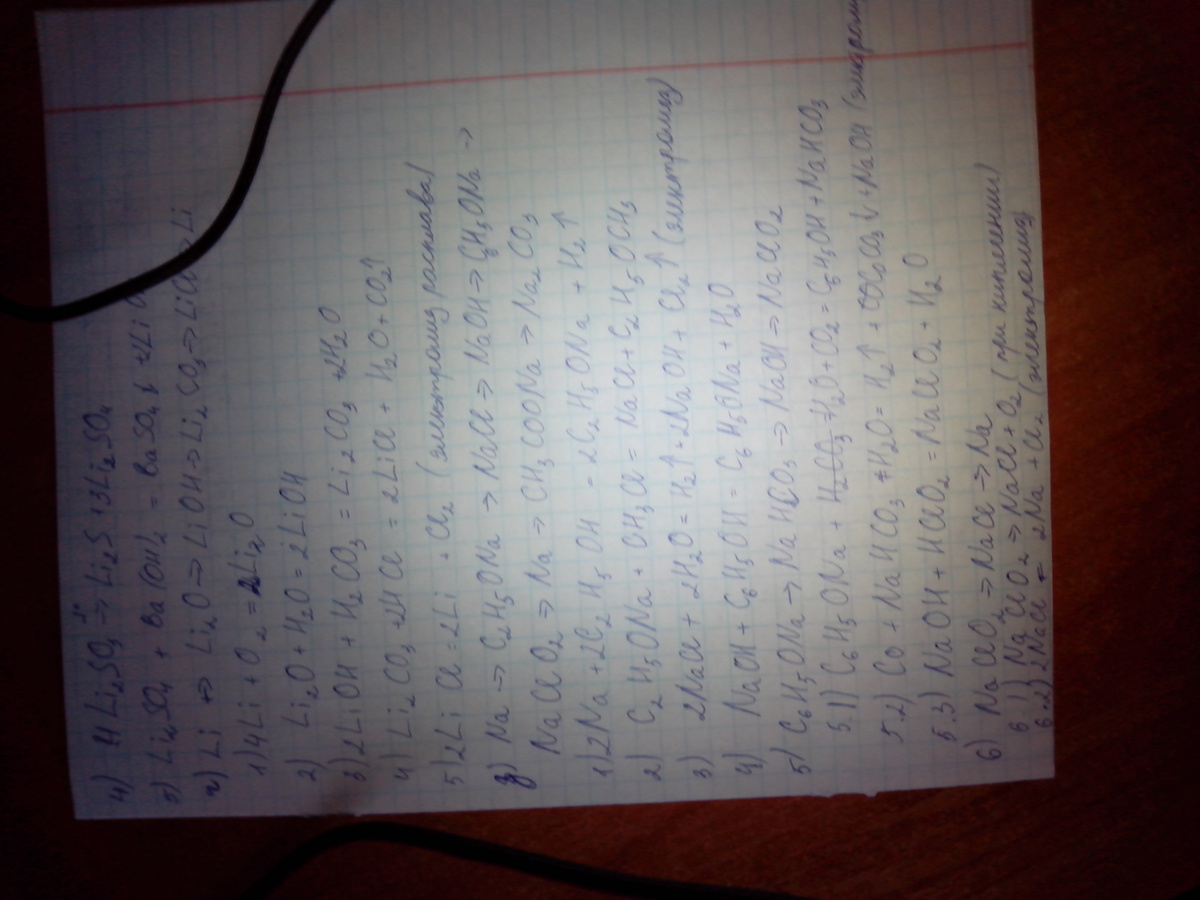 4) 4 Li₂SO₃ →ᵗ° Li₂S + 3Li₂SO₄
5) Li₂SO₄ + Ba(OH)₂ = BaSO₄↓ + 2LiO
г) Li → Li₂O → LiOH → Li₂CO₃ → LiCl → Li
1) 4Li + O₂ = 2Li₂O
2) Li₂O + H₂O = 2LiOH
3) 2LiOH + H₂CO₃ = Li₂CO₃ + 2H₂O
4) Li₂CO₃ + 2HCl = 2LiCl + H₂O + CO₂↑
5) 2LiCl = 2Li + Cl₂ (электролиз расплава)
д) Na → C₂H₅ONa → NaCl → NaOH → C₆H₅ONa →
NaClO₂ → Na → CH₃COONa → Na₂CO₃
1) 2Na + 2C₂H₅OH = 2C₂H₅ONa + H₂↑
2) C₂H₅ONa + CH₃Cl = NaCl + C₂H₅OCH₃
3) 2NaCl + 2H₂O = H₂↑ + 2NaOH + Cl₂↑ (электролиз)
4) NaOH + C₆H₅OH = C₆H₅ONa + H₂O
5) C₆H₅ONa → NaHCO₃ → NaOH → NaClO₂
5.1) C₆H₅ONa + H₂O + CO₂ = C₆H₅OH + NaHCO₃
5.2) Co + NaHCO₃ + H₂O = H₂↑ + CoCO₃↓ + NaOH
5.3) NaOH + HClO₂ = NaClO₂ + H₂O
6) NaClO₂ → NaCl → Na
6.1) NaClO₂ → NaCl + O₂ (при кипячении)
6.2) 2NaCl = 2Na + Cl₂ (электролиз)